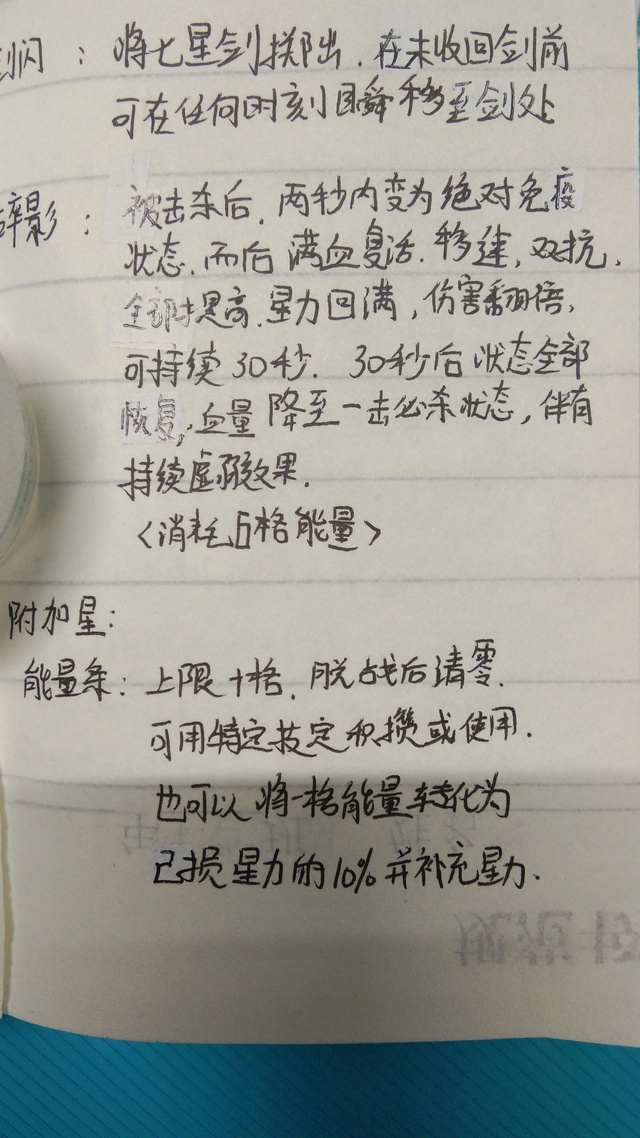 闪：将七星剑掷出．在未收回剑前
可在任何时刻瞬移至剑处
碎影：被击杀后，两秒内变为绝对免疫
状态，而后满血复活．移速，双抗，
全部提高．星力回满，伤害翻倍，
可持续30秒．30秒后状态全部
恢复，血量降至一击必杀状态，伴有
持续虚弱效果．
〈消耗格能量〉
附加星：
能量条：上限十格．脱战后清零．
可用特定技定积攒或使用．
也可以将一格能量转化为
已损星力的10%并补充星力．